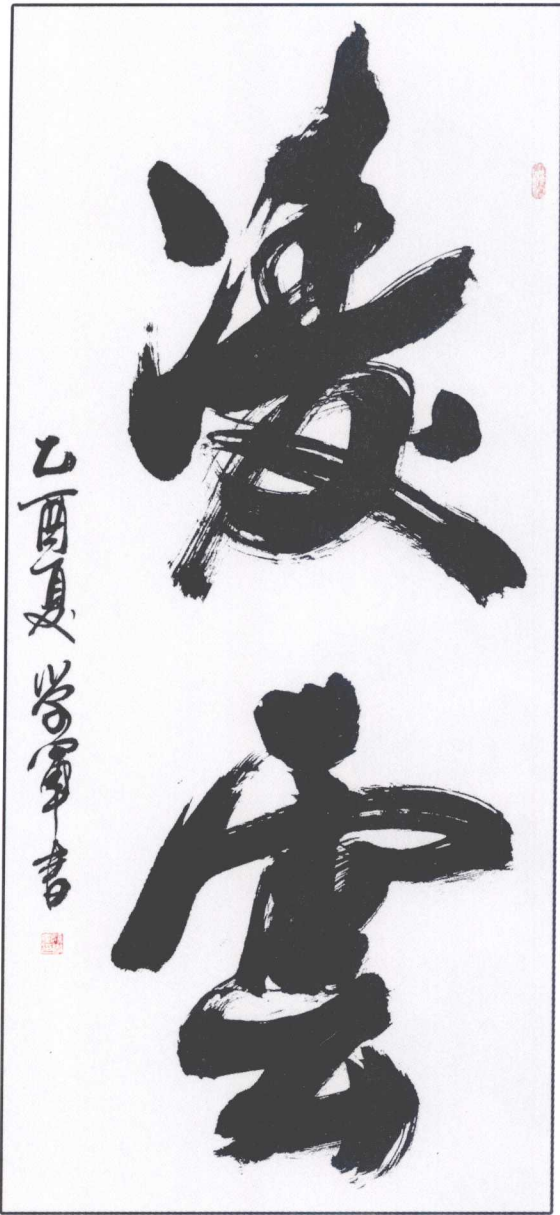 凌雲
乙酉夏 学军书